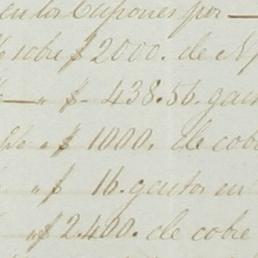 en los Cupones por —
sobre $ 2000. de
— " $ 438.56. gas
" $ 1000. de cob
" $ 16. gastos en
" $ 2.400. de cobre